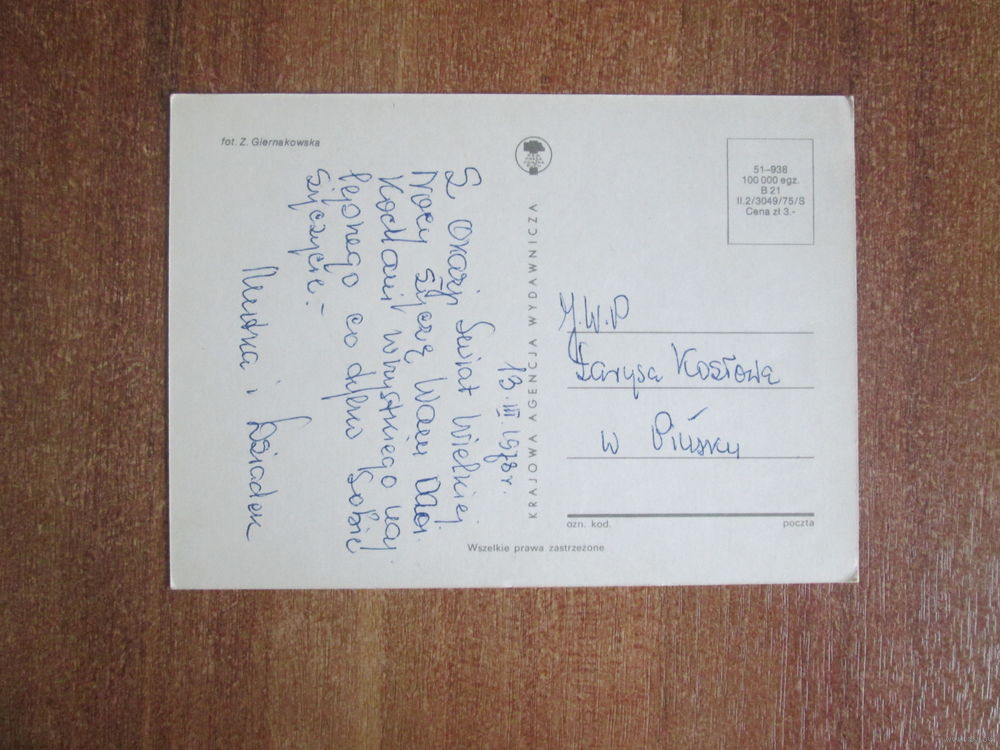 fot. Z. Giernakowska
13.III.1978r.
Z Okazji Świąt Wielkiej
Nocy życzę Wam
Kochani wszystkiego naj
lepszego co tylko Sobie
życzycie.-
i Dziadek
KRAJOWA AGENCJA WYDAWNICZA
51–938
100 000 egz.
B 21
II.2/3049/75/S
Cena zł 3.-
J.W.P
Łarysa Kosłowa
w Pińsku
ozn. kod.
poczta
Wszelkie prawa zastrzeżone